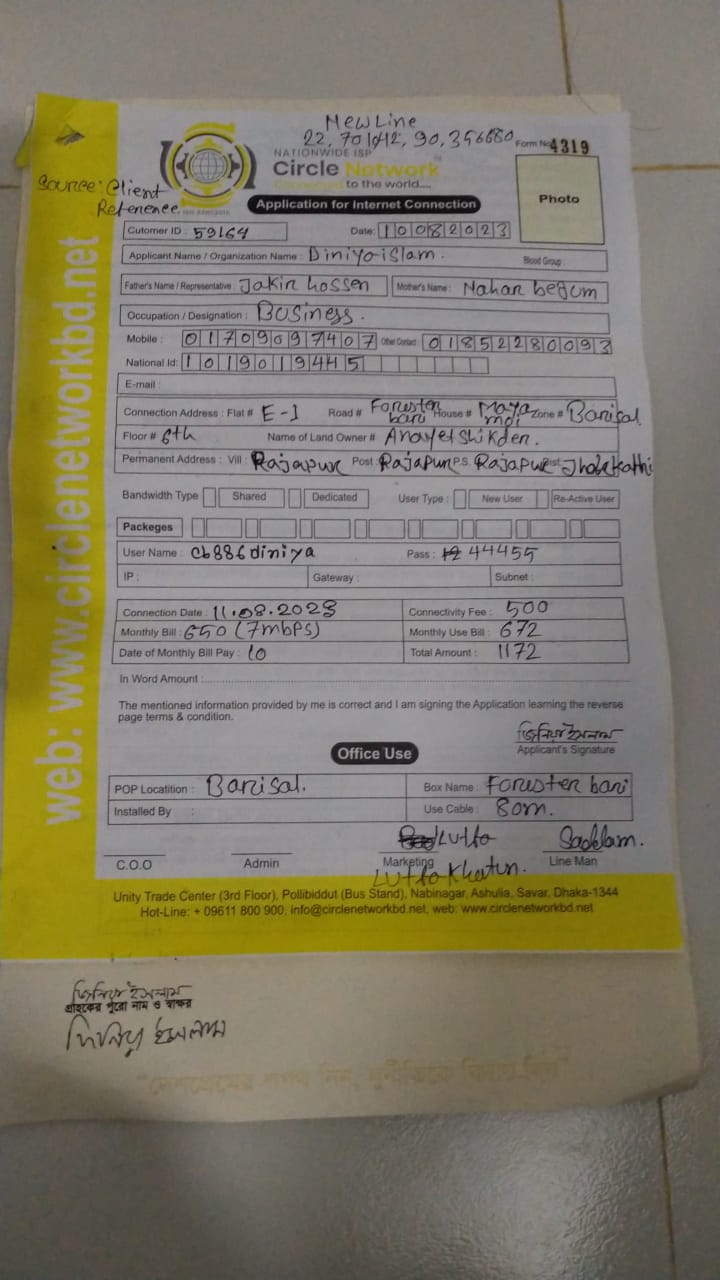 New Line
22, 701412, 90, 356680
Form No 4319
NATIONWIDE ISP
Circle Network
Connected to the world....
Source: Client
Reference
Application for Internet Connection
Photo
Cutomer ID : 59164 Date: 10082023
Applicant Name / Organization Name : Diniya islam. Blood Group :
Father's Name / Representative : Jakir hossen Mother's Name : Nahar begum
Occupation / Designation : Business.
Mobile : 01709097407 Other Contact : 01852280093
National Id: 1019019445
E-mail :
Connection Address : Flat # E-1 Road # Forester bari House # Maya Zone # Barisal
Floor # 6th Name of Land Owner # Anayet Shikder.
Permanent Address : Vill : Rajapur Post : Rajapur P.S. Rajapur Dist: Jhalakathi
Bandwidth Type Shared Dedicated User Type : New User Re-Active User
Packeges
User Name : cb886diniya Pass : 44455
IP : Gateway : Subnet :
Connection Date : 11.08.2023 Connectivity Fee : 500
Monthly Bill : 650 (7mbps) Monthly Use Bill : 672
Date of Monthly Bill Pay : 10 Total Amount : 1172
In Word Amount :
The mentioned information provided by me is correct and I am signing the Application learning the reverse
page terms & condition.
জিনিয়া ইসলাম
Applicant's Signature
Office Use
POP Locatition : Barisal. Box Name : Forester bari
Installed By : Use Cable : 80m.
Lutfa Saddam.
C.O.O Admin Marketing Line Man
Lutfa Khatun.
Unity Trade Center (3rd Floor), Pollibiddut (Bus Stand), Nabinagar, Ashulia, Savar, Dhaka-1344
Hot-Line: + 09611 800 900, info@circlenetworkbd.net, web: www.circlenetworkbd.net
web: www.circlenetworkbd.net
জিনিয়া ইসলাম
গ্রাহকের পুরো নাম ও স্বাক্ষর
জিনিয়া ইসলাম
"দেশপ্রেমের শপথ নিন, দুর্নীতিকে বিদায় দিন"